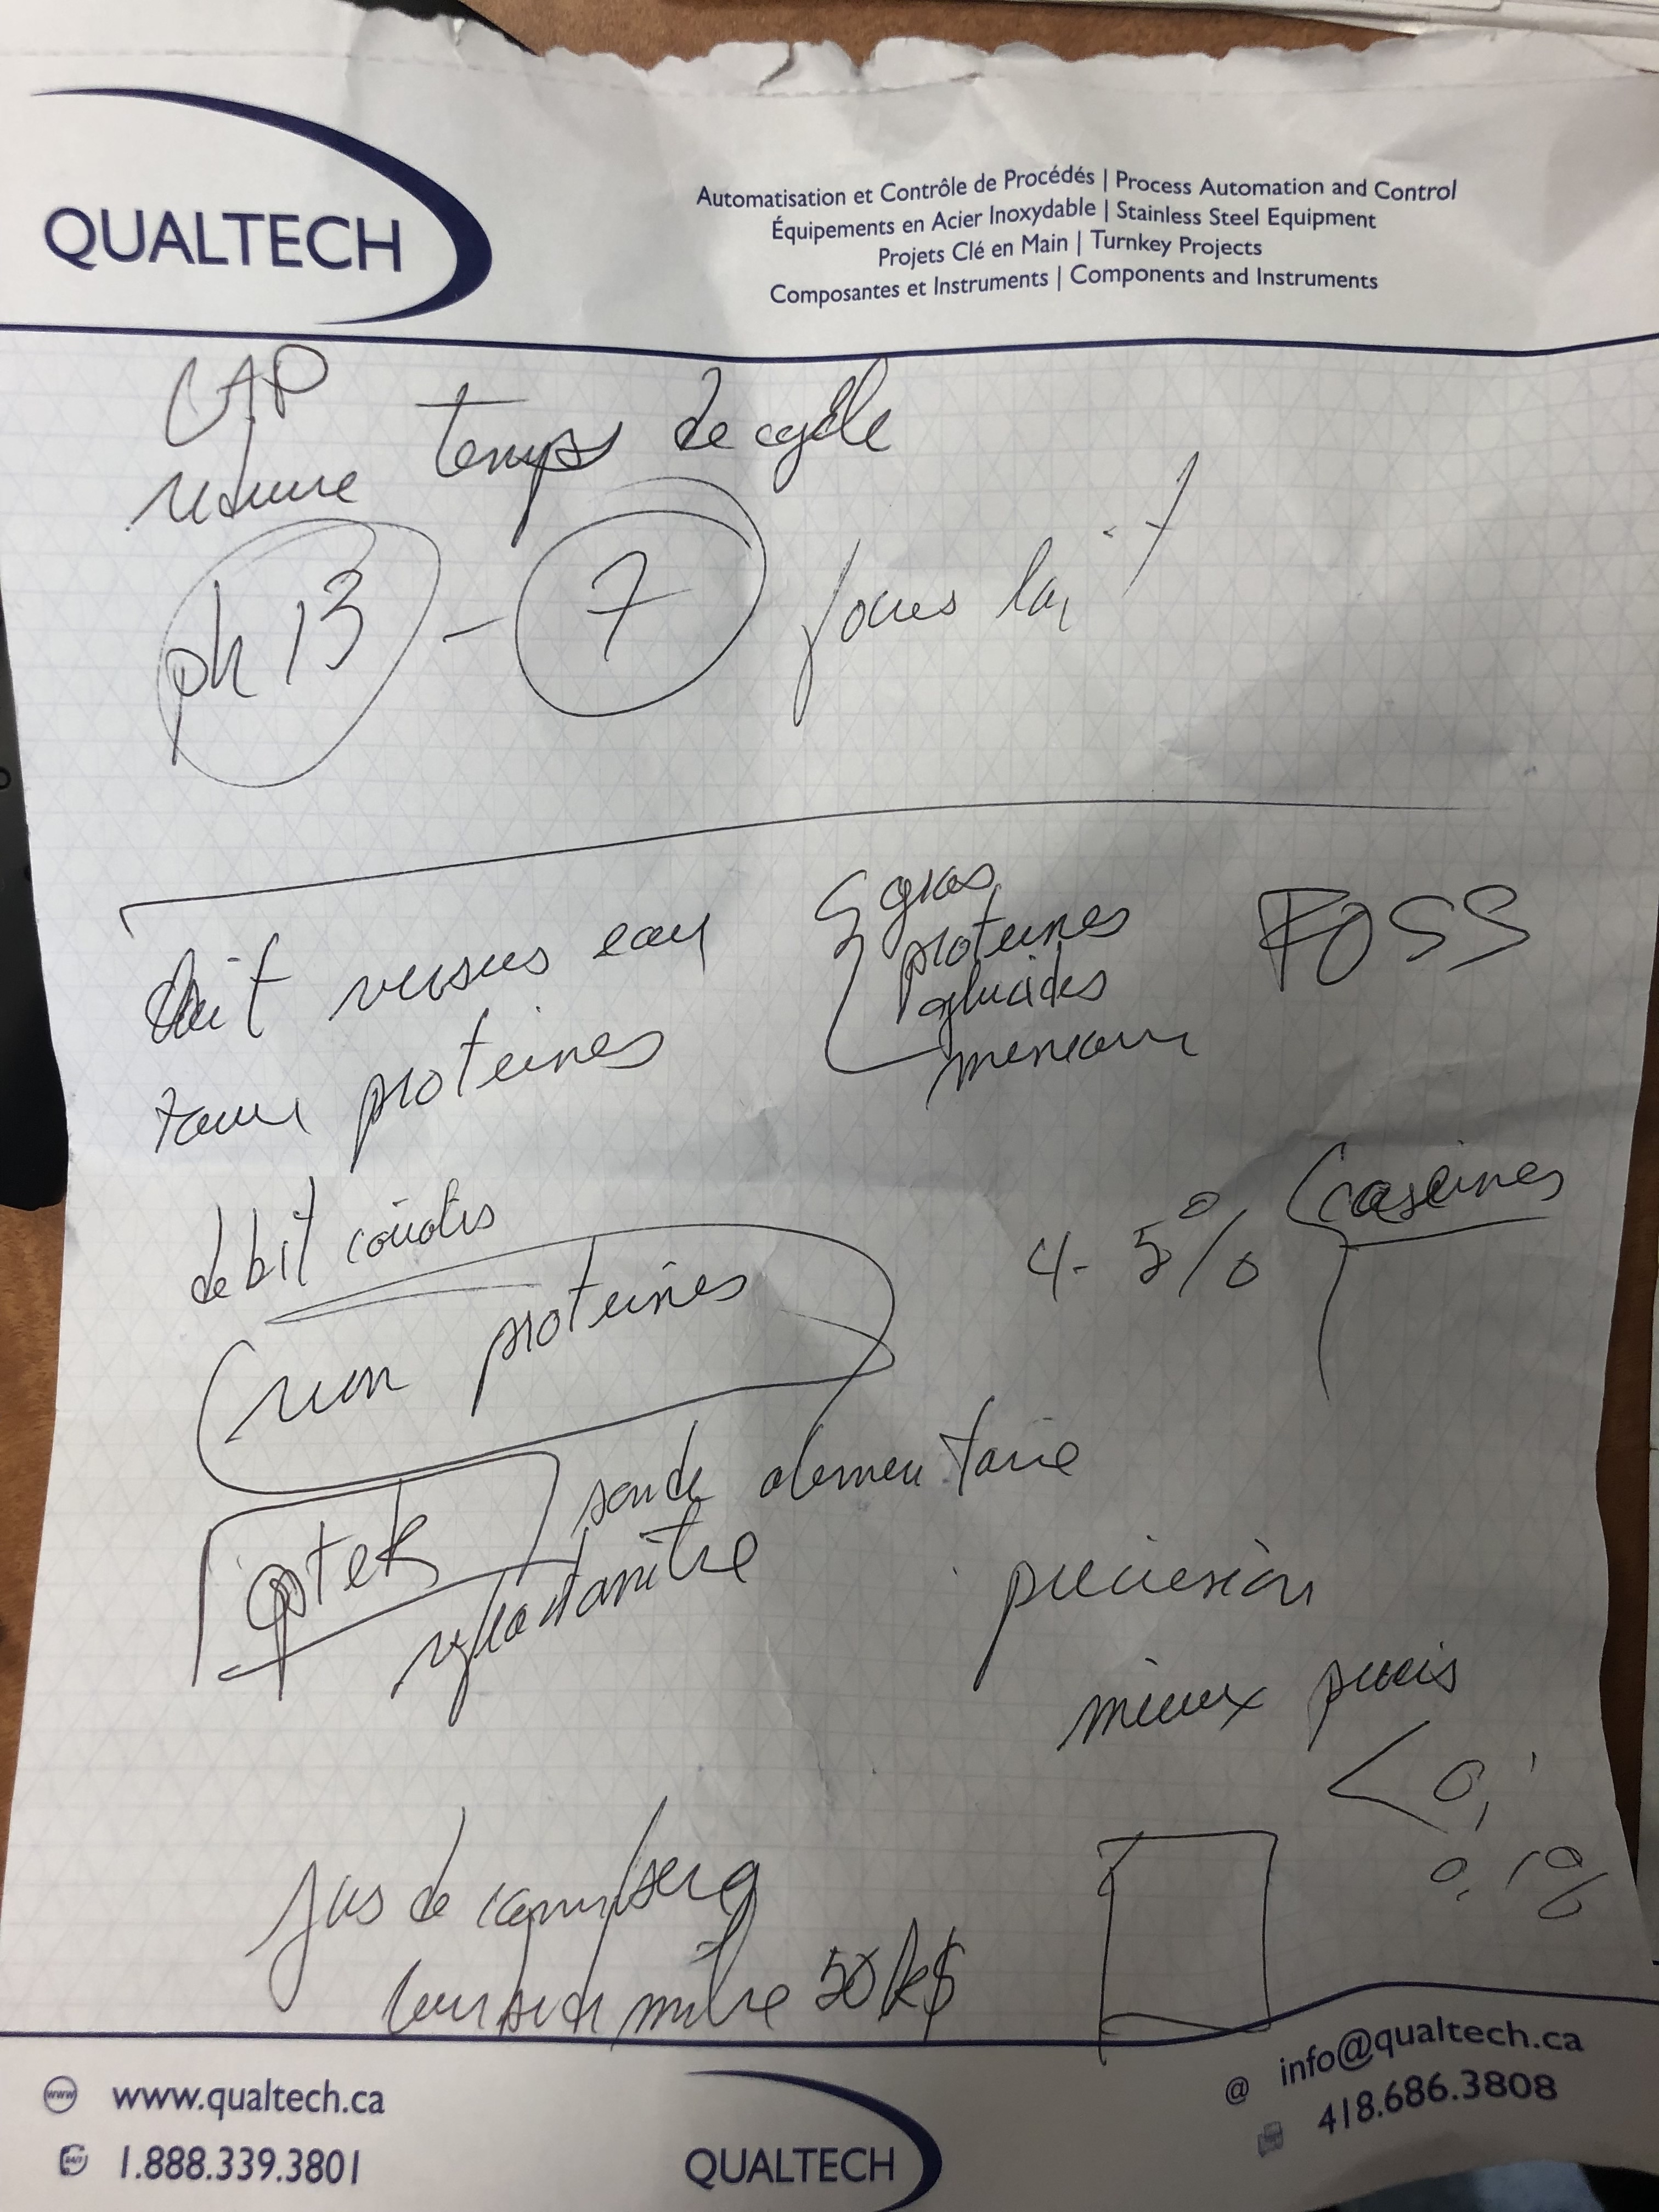 QUALTECH
Automatisation et Contrôle de Procédés | Process Automation and Control
Équipements en Acier Inoxydable | Stainless Steel Equipment
Projets Clé en Main | Turnkey Projects
Composantes et Instruments | Components and Instruments
temps de cycle
ph 13 - 7 lait
gras
lait versus eau proteines FOSS
glucides
taux proteines
debit
4-5% caseines
proteines
optek sonde alementaire
precision
mieux precis
< 0,
0,1%
Jus de
50k$
www.qualtech.ca
1.888.339.3801
QUALTECH
@ info@qualtech.ca
418.686.3808